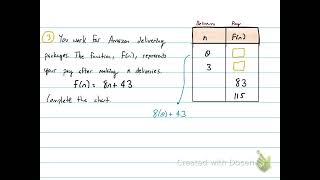 ③ You work for Amazon delivering
packages. The function, F(n), represents
your pay after making n deliveries.
F(n) = 8n + 43
Complete the chart.
Deliveries Pay
n F(n)
0
3
83
115
8(0) + 43
Created with Doceri